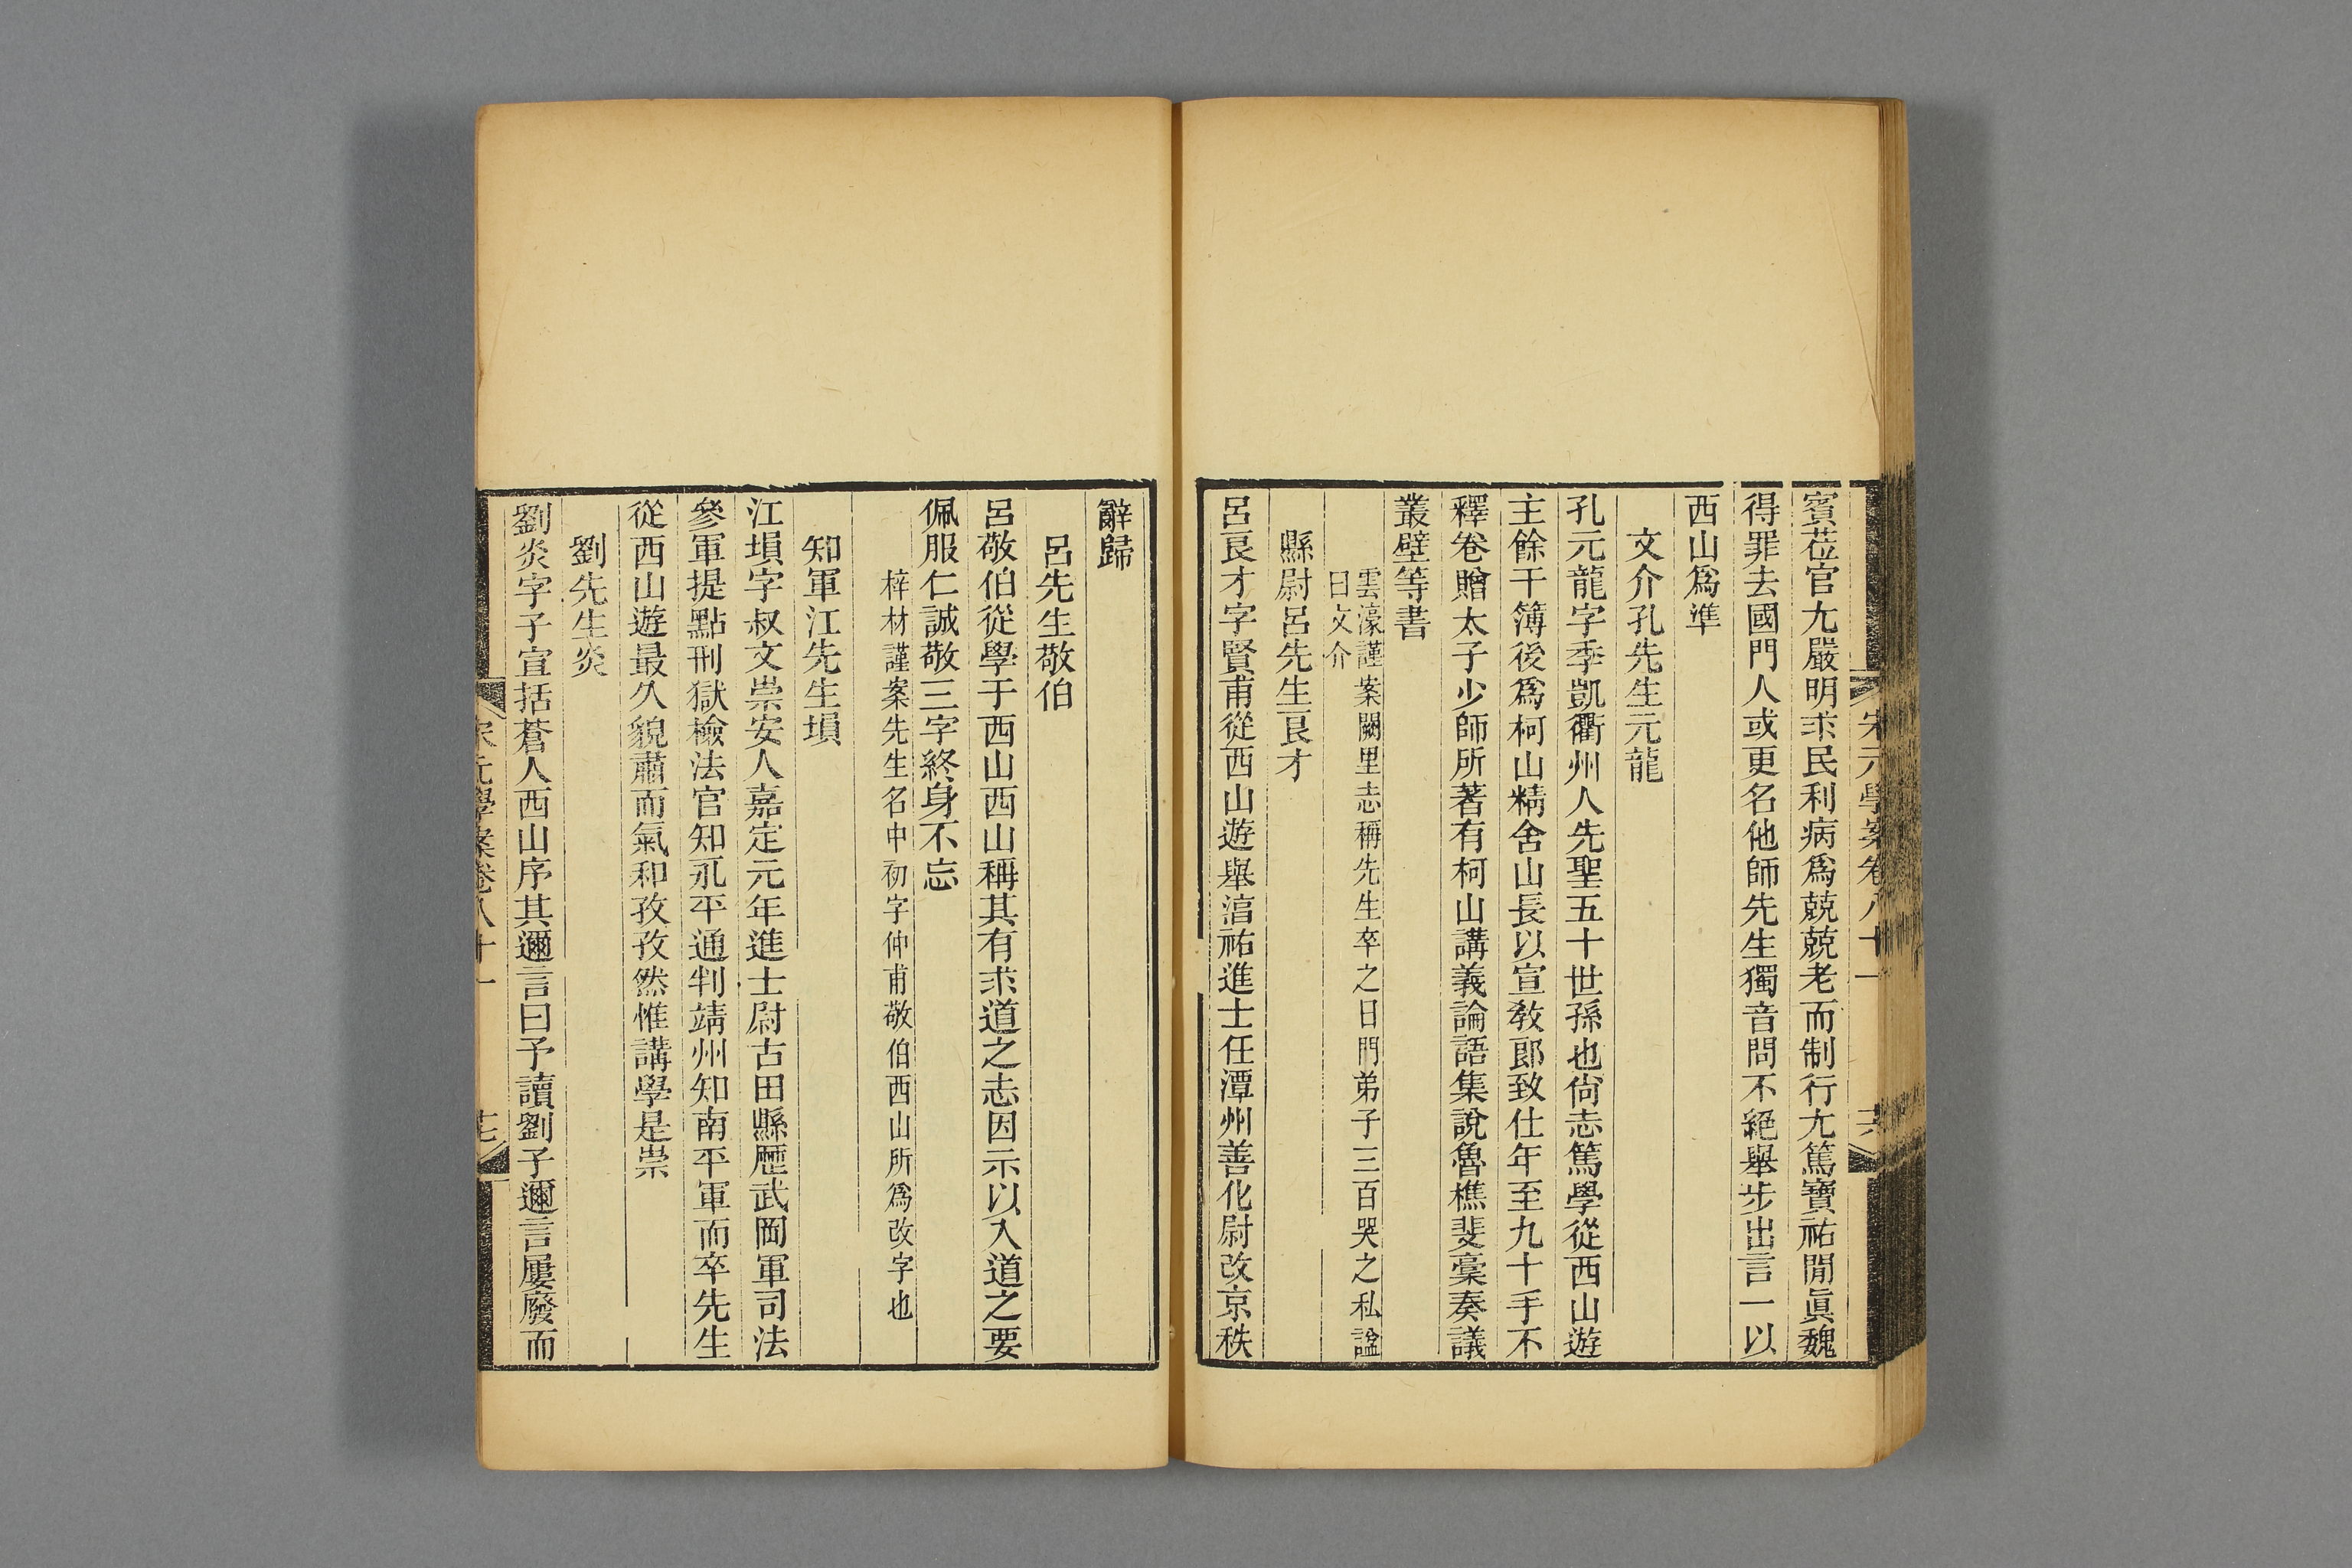 宋元學案卷八十一
賓莅官尤嚴明求民利病爲兢兢老而制行尤篤寶祐閒眞魏
得罪去國門人或更名他師先生獨音問不絕舉步出言一以
西山爲準
文介孔先生元龍
孔元龍字季凱衢州人先聖五十世孫也尙志篤學從西山遊
主餘干簿後爲柯山精舍山長以宣敎郞致仕年至九十手不
釋卷贈太子少師所著有柯山講義論語集說魯樵斐稾奏議
叢壁等書
雲濠謹案闕里志稱先生卒之日門弟子三百哭之私謚
曰文介
縣尉呂先生良才
呂良才字賢甫從西山遊舉湻祐進士任潭州善化尉改京秩
辭歸
呂先生敬伯
呂敬伯從學于西山西山稱其有求道之志因示以入道之要
佩服仁誠敬三字終身不忘
梓材謹案先生名中初字仲甫敬伯西山所爲改字也
知軍江先生塤
江塤字叔文崇安人嘉定元年進士尉古田縣歷武岡軍司法
參軍提點刑獄檢法官知永平通判靖州知南平軍而卒先生
從西山遊最久貌肅而氣和孜孜然惟講學是崇
劉先生炎
劉炎字子宣括蒼人西山序其邇言曰予讀劉子邇言屢廢而
宋元學案卷八十一